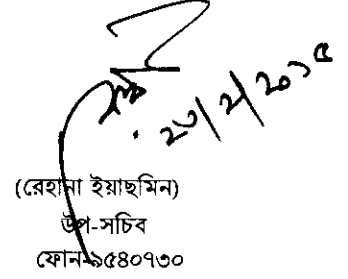 ২৩/২/২০১৫
(রেহানা ইয়াছমিন)
উপ-সচিব
ফোন-৯৫৪০৭৩০